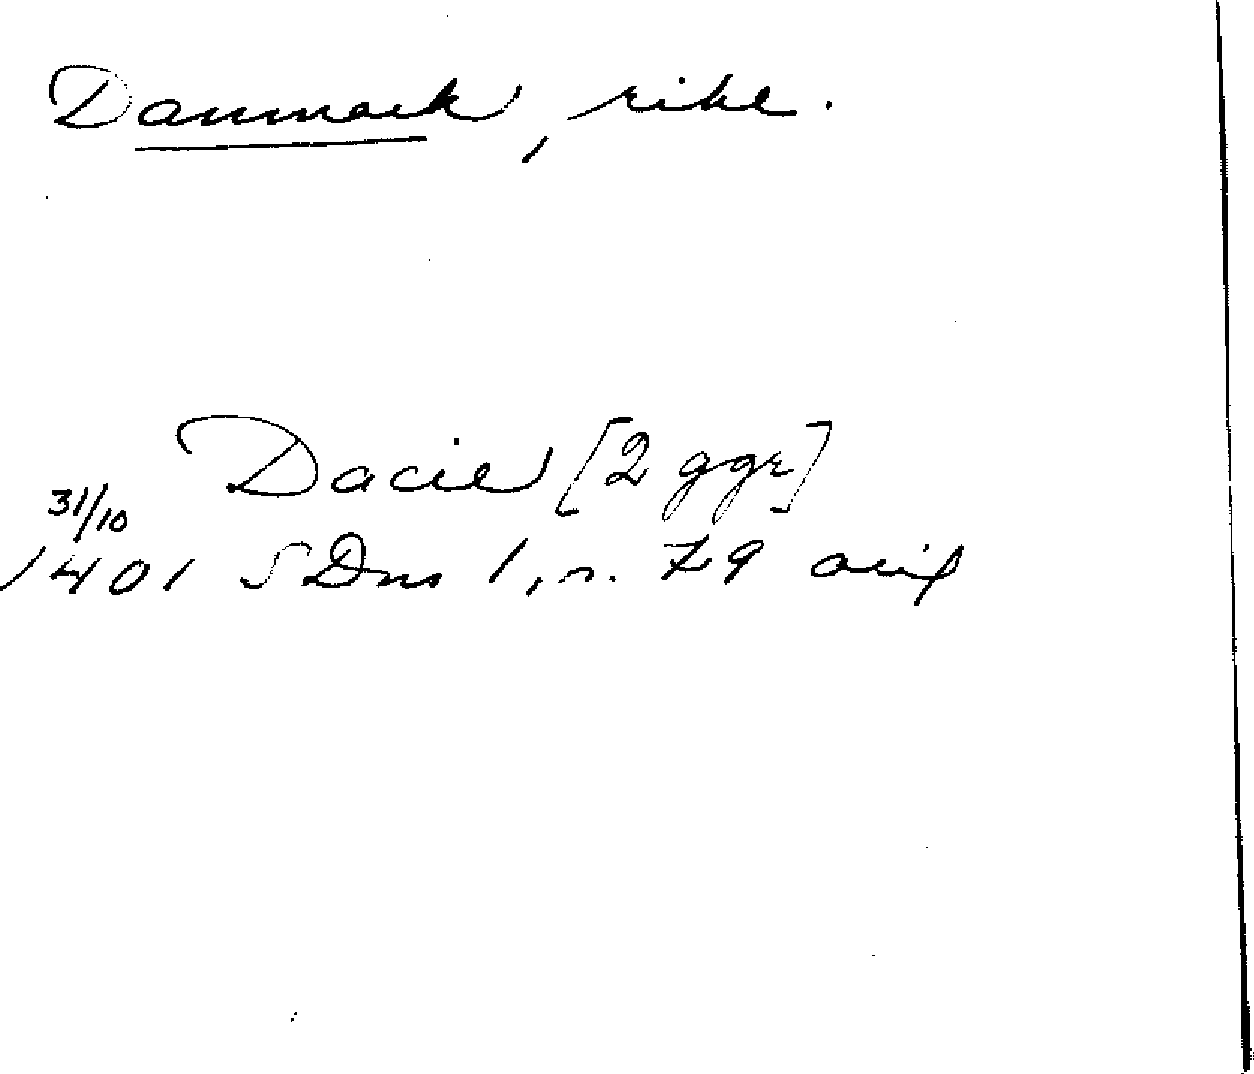 Danmark, rike.
Dacie [2 ggr]
31/10
1401 SDns 1, n. 79 avs